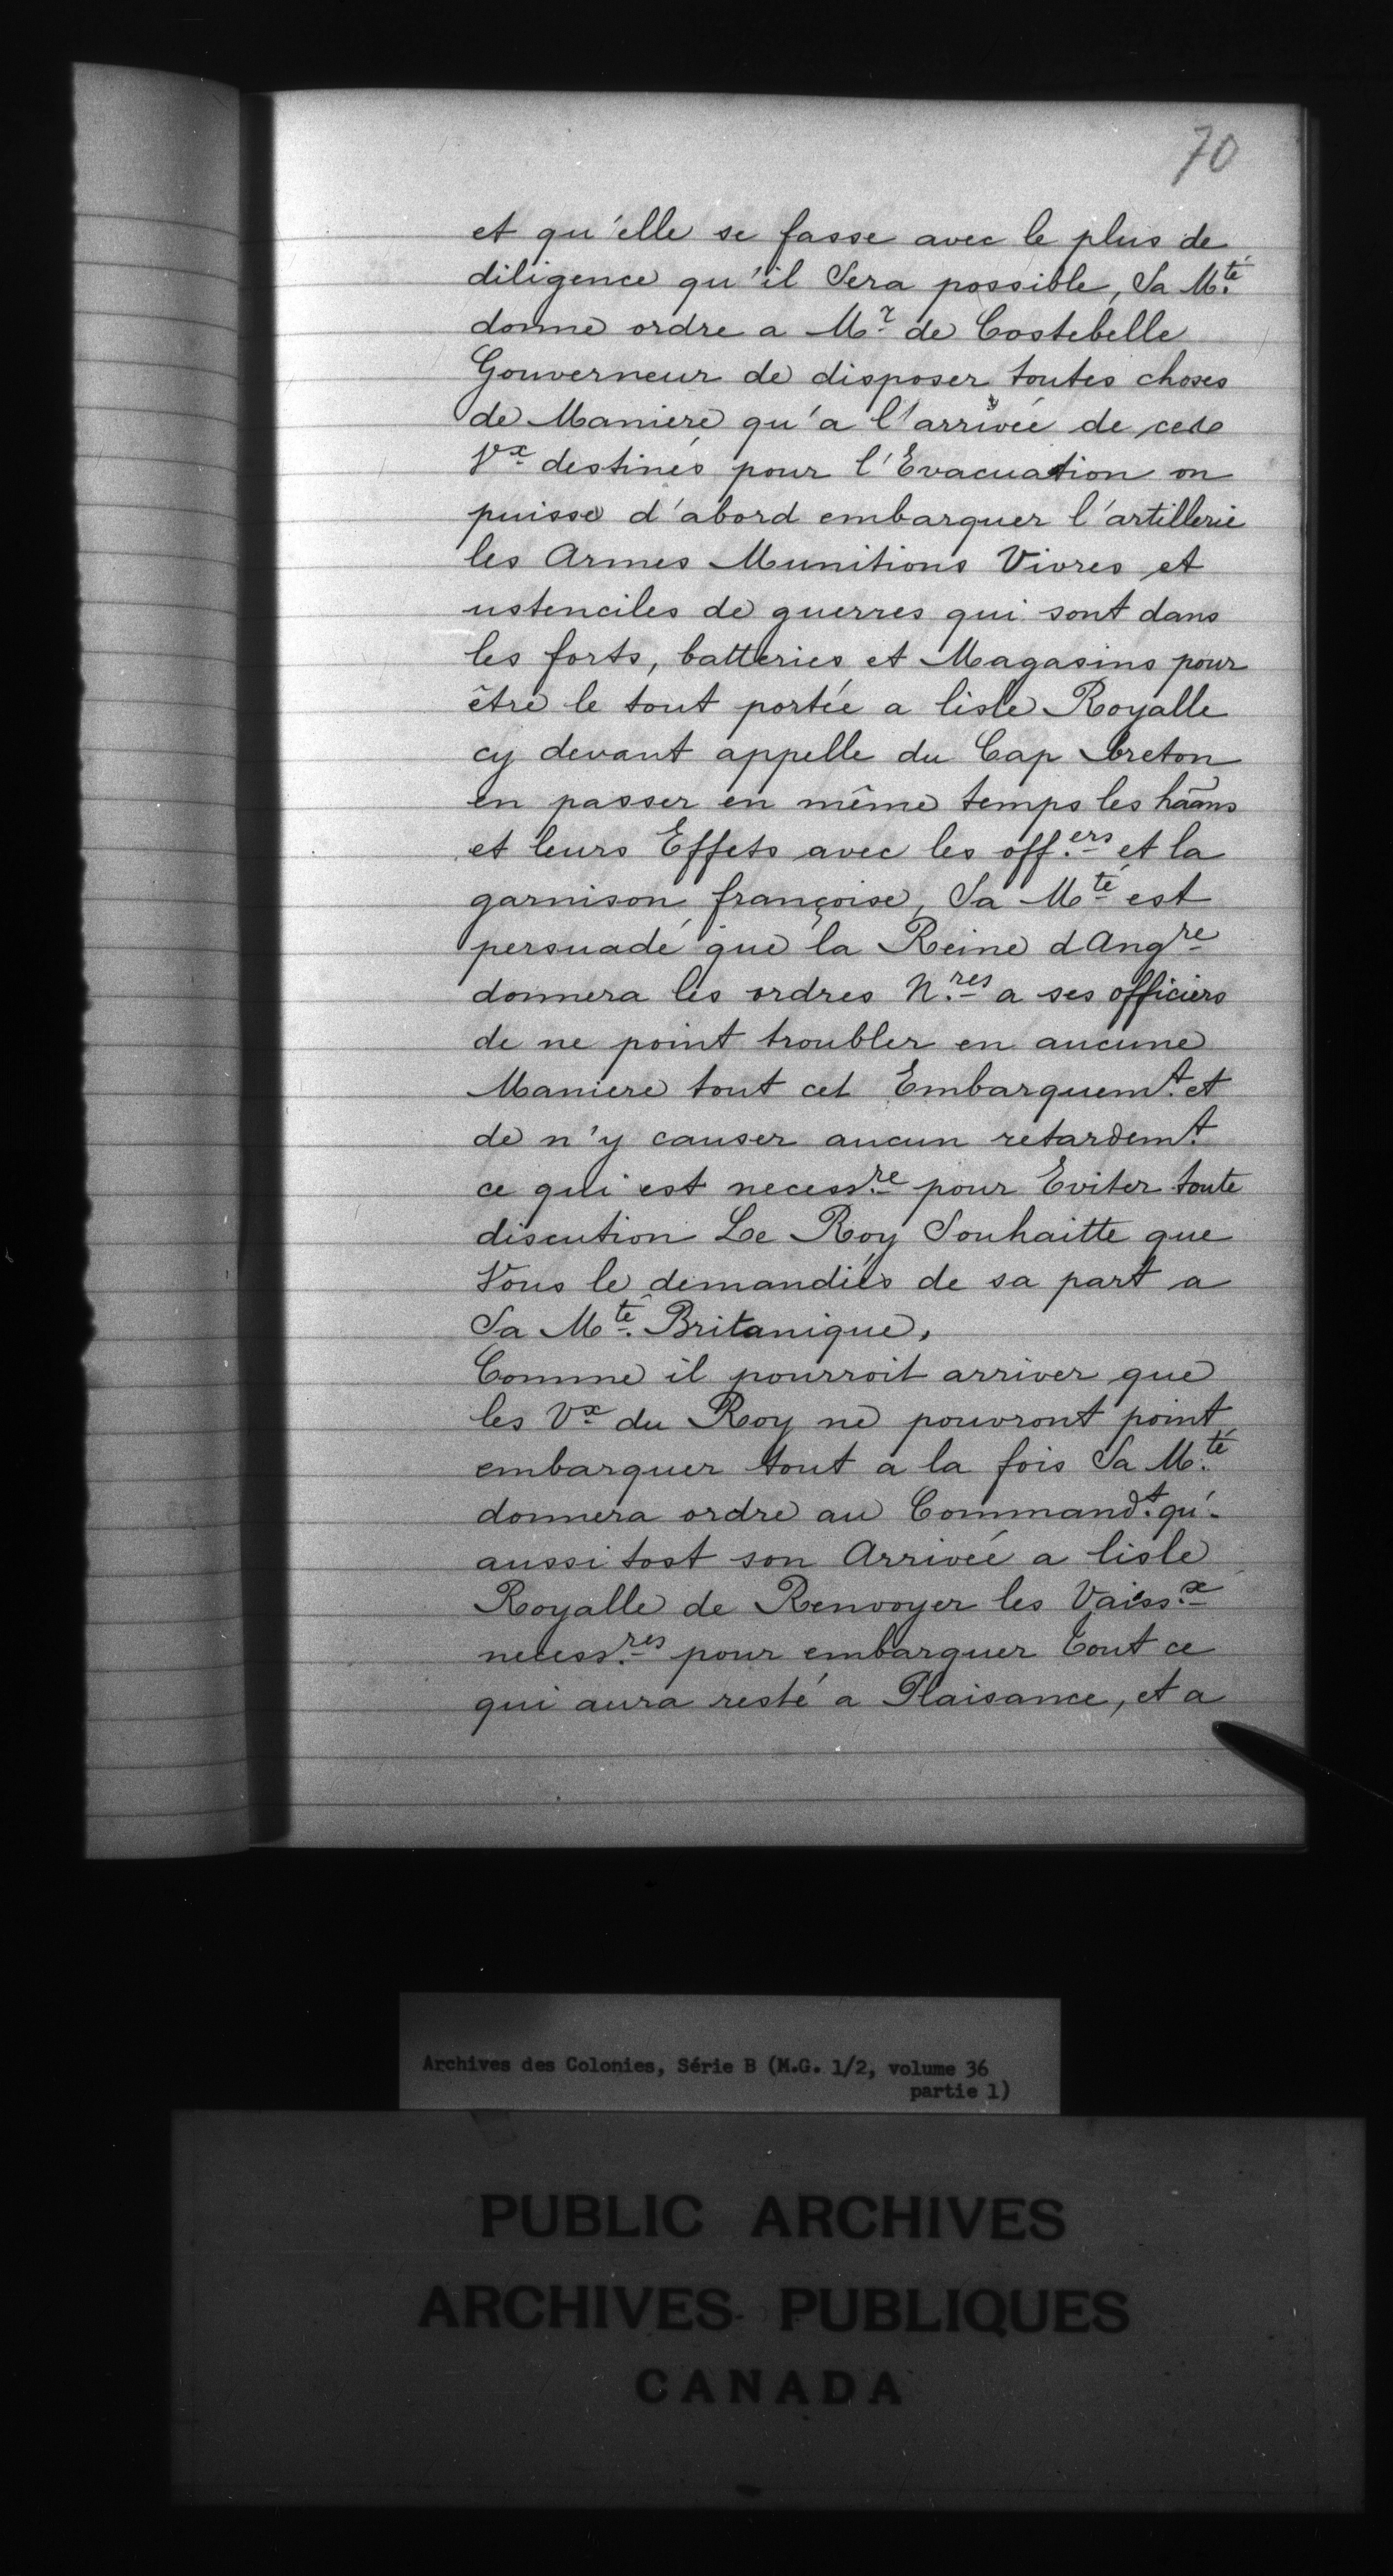 70
et qu'elle se fasse avec le plus de
diligence qu'il Sera possible, Sa M.té
donne ordre a Mr de Costebelle
Gouverneur de disposer toutes choses
de Maniere qu'a l'arrivée de ces
Vx destinés pour l'Evacuation on
puisse d'abord embarquer l'artillerie
les Armes Munitions Vivres et
ustenciles de guerres qui sont dans
les forts, batteries et Magasins pour
être le tout portée a lisle Royalle
cy devant appelle du Cap breton
en passer en même temps les hãans
et leurs Effets avec les off.ers et la
garnison françoise, Sa Mté est
persuadé que la Reine dAngre
donnera les ordres N.res a ses officiers
de ne point troubler en aucune
Maniere tout cet Embarquem.t et
de n'y causer aucun retardem.t
ce qui est necess.re pour Eviter toute
discution Le Roy Souhaitte que
Vous le demandiés de sa part a
Sa Mté. Britanique,
Comme il pourroit arriver que
les Vx du Roy ne pouvront point
embarquer tout a la fois Sa M.té
donnera ordre au Command.t qu'-
aussi tost son Arrivée a lisle
Royalle de Renvoyer les Vaiss.x
necess.res pour embarquer tout ce
qui aura resté a Plaisance, et a
Archives des Colonies, Série B (M.G. 1/2, volume 36
partie 1)
PUBLIC ARCHIVES
ARCHIVES PUBLIQUES
CANADA